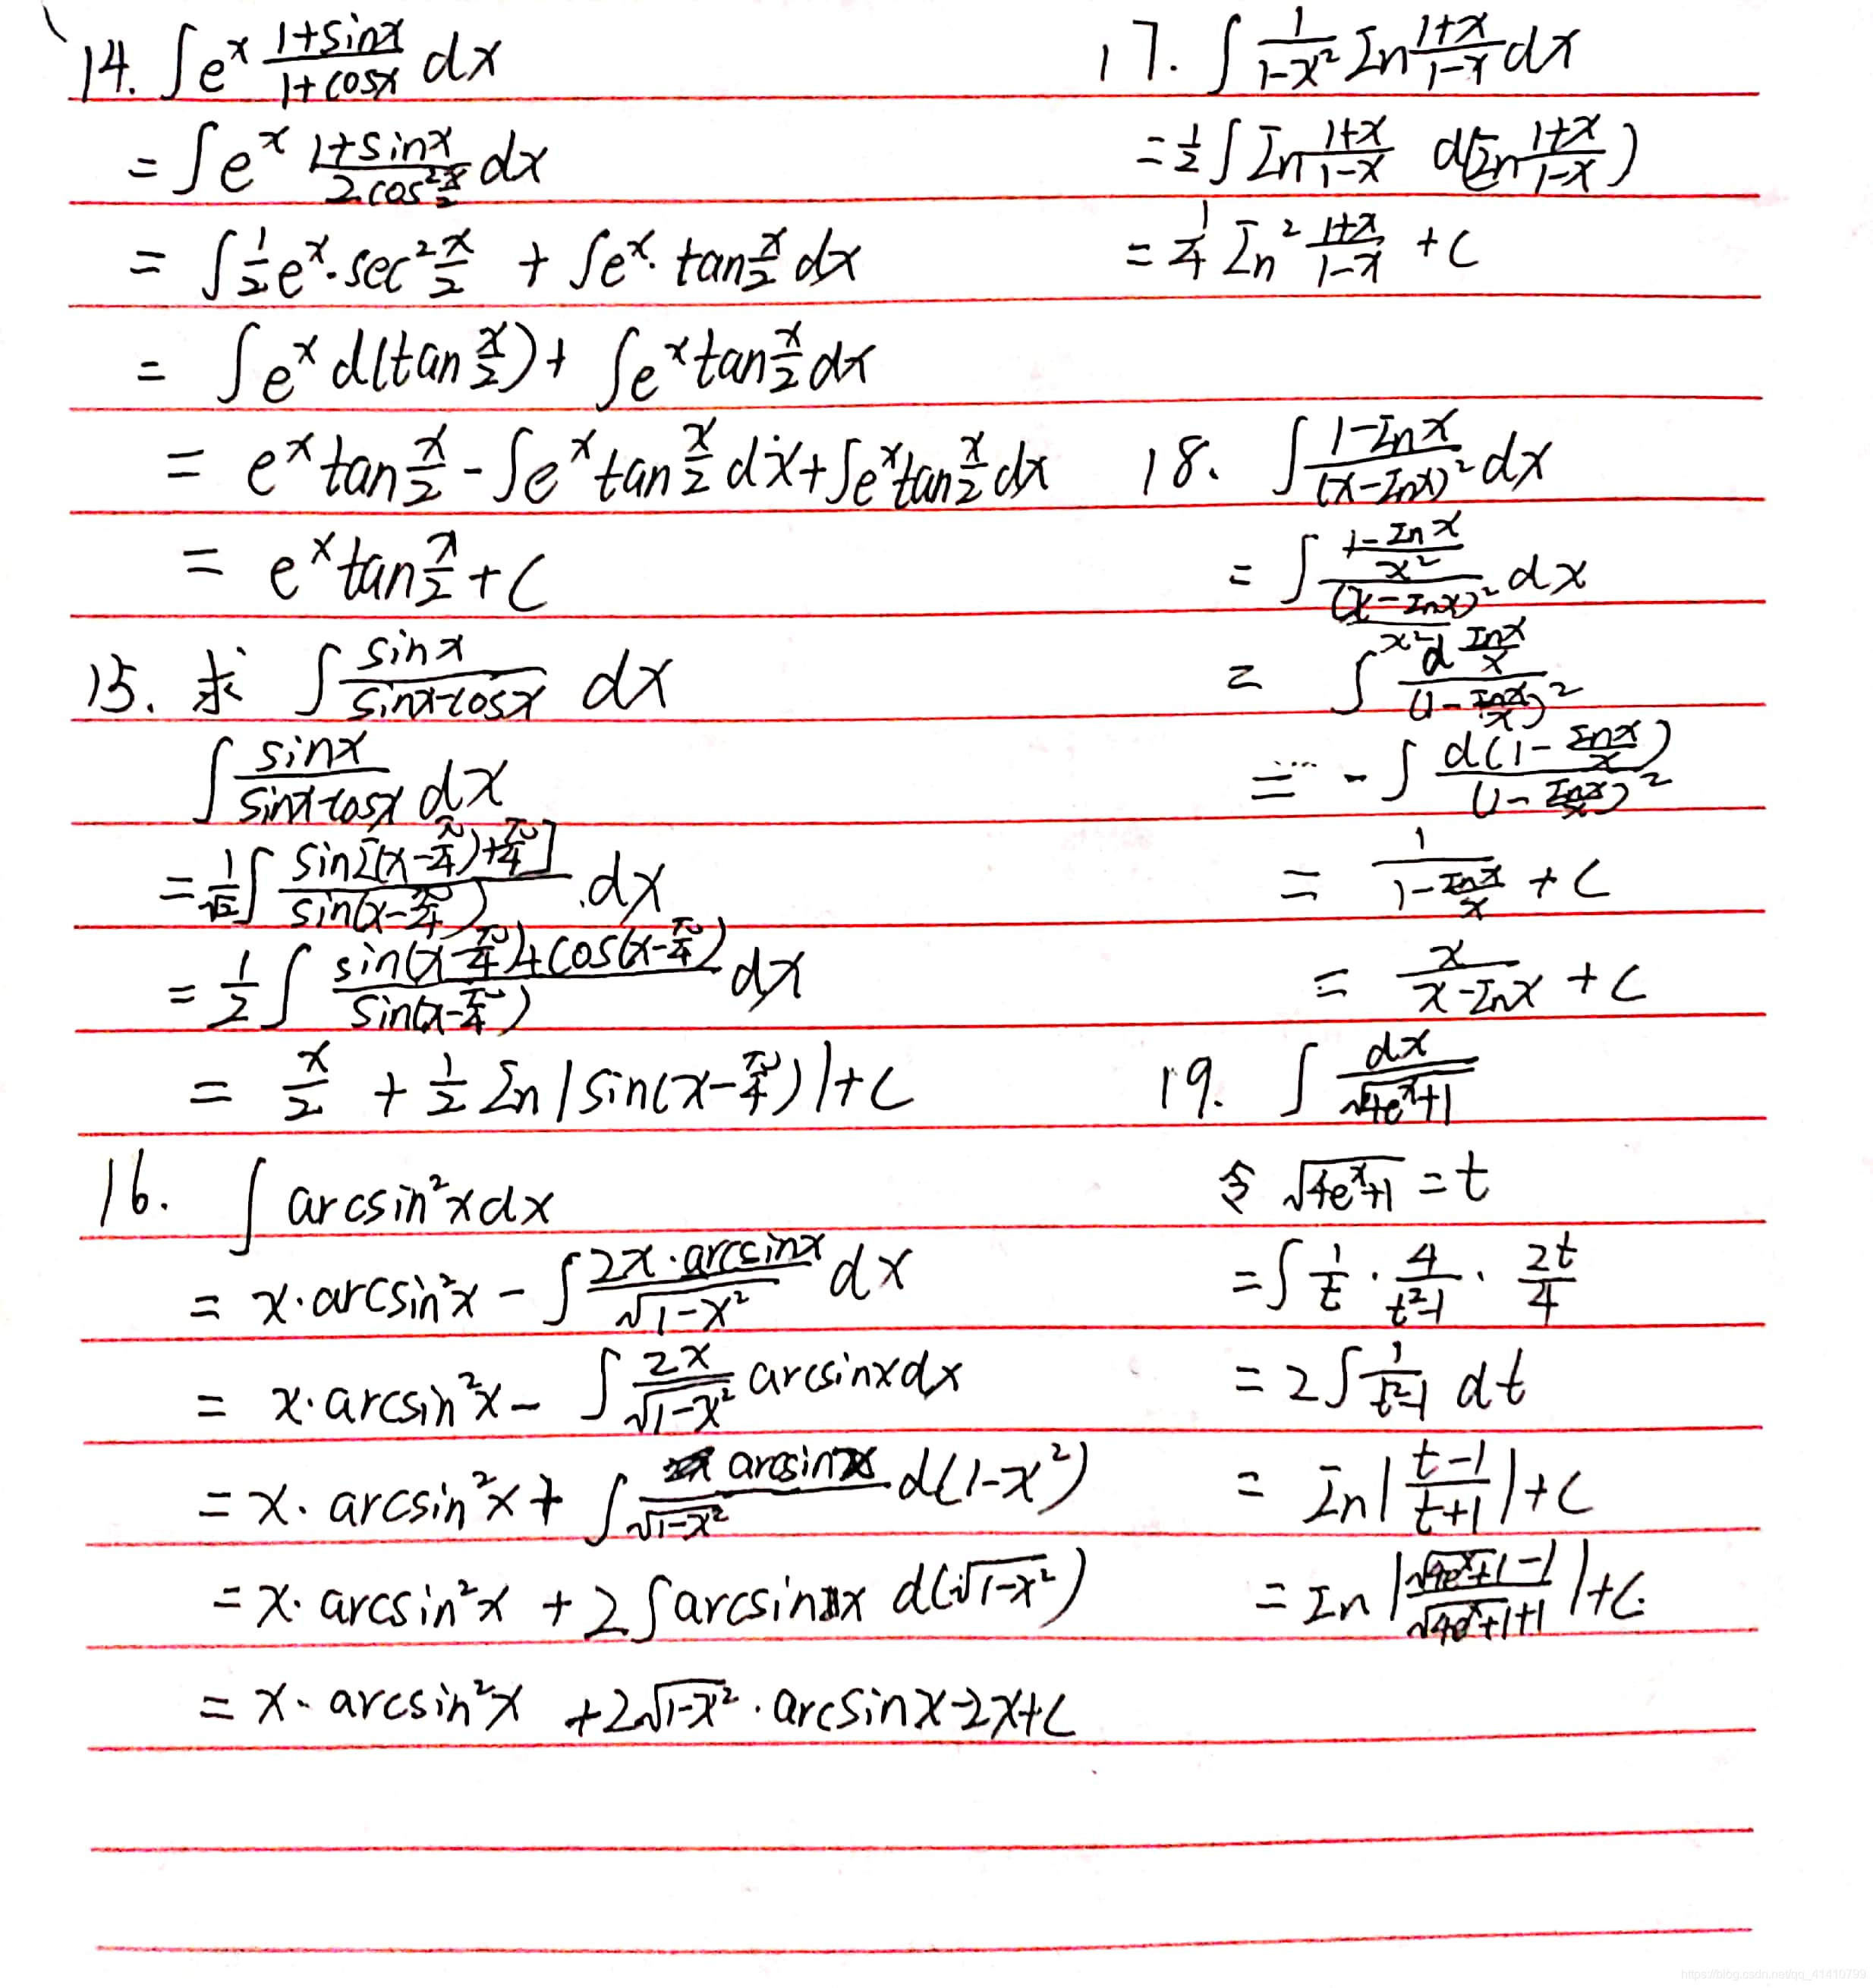 14. ∫e^x (1+sinx)/(1+cosx) dx
= ∫e^x (1+sinx)/(2cos²(x/2)) dx
= ∫(1/2)e^x·sec²(x/2) + ∫e^x·tan(x/2) dx
= ∫e^x d(tan(x/2)) + ∫e^x tan(x/2) dx
= e^x tan(x/2) - ∫e^x tan(x/2) dx + ∫e^x tan(x/2) dx
= e^x tan(x/2) + C
15. 求 ∫sinx/(sinx-cosx) dx
∫sinx/(sinx-cosx) dx
= (1/√2)∫sin[(x-π/4)+π/4]/sin(x-π/4) dx
= (1/2)∫(sin(x-π/4)+cos(x-π/4))/sin(x-π/4) dx
= x/2 + (1/2)ln|sin(x-π/4)|+C
16. ∫arcsin²x dx
= x·arcsin²x - ∫(2x·arcsinx)/√(1-x²) dx
= x·arcsin²x - ∫(2x/√(1-x²)) arcsinx dx
= x·arcsin²x + ∫(arcsinx/√(1-x²)) d(1-x²)
= x·arcsin²x + 2∫arcsinx d(√(1-x²))
= x·arcsin²x + 2√(1-x²)·arcsinx-2x+C
17. ∫(1/(1-x²)) ln((1+x)/(1-x)) dx
= (1/2)∫ln((1+x)/(1-x)) d(ln((1+x)/(1-x)))
= (1/4)ln²((1+x)/(1-x)) + C
18. ∫(1-lnx)/(x-lnx)² dx
= ∫((1-lnx)/x²)/((x-lnx)²/x²) dx
= ∫d(lnx/x)/(1-lnx/x)²
= -∫d(1-lnx/x)/(1-lnx/x)²
= 1/(1-lnx/x) + C
= x/(x-lnx) + C
19. ∫dx/√(4e^x+1)
令 √(4e^x+1) = t
= ∫(1/t)·(4/(t²-1))·(2t/4)
= 2∫1/(t²-1) dt
= ln|(t-1)/(t+1)|+C
= ln|(√(4e^x+1)-1)/(√(4e^x+1)+1)|+C.
https://blog.csdn.net/qq_41410799